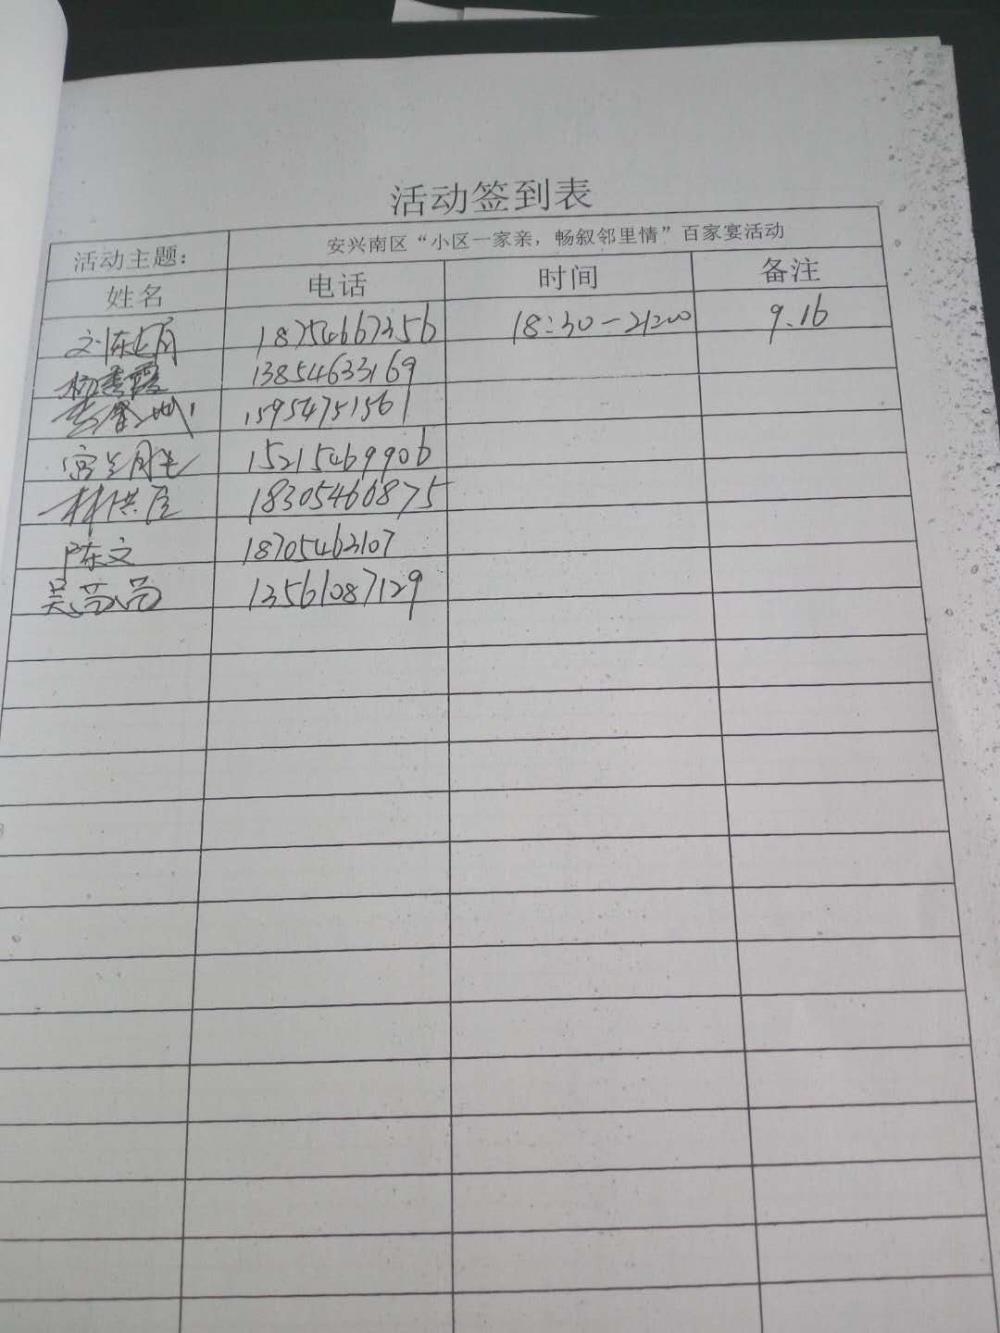 活动签到表
活动主题： 安兴南区“小区一家亲，畅叙邻里情”百家宴活动
姓名 电话 时间 备注
18754667356 18:30-21:00 9.16
杨秀霞 13854633169
15954751561
15215469906
林洪臣 18305466875
陈文 18705463107
吴 13561087129